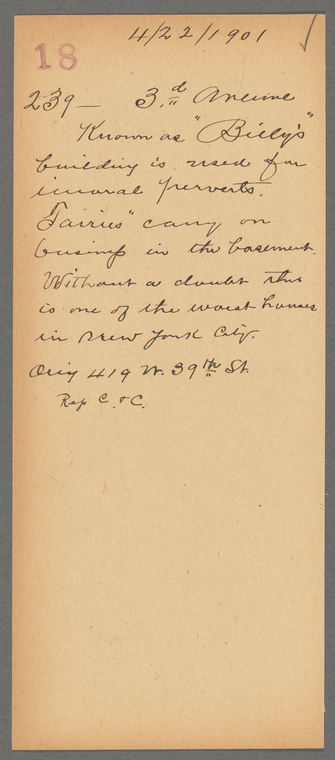 4/22/1901
18
239 — 3.rd Avenue
Known as "Billy's"
building is used for
imoral perverts.
Fairies" carry on
business in the basement.
Without a doubt this
is one of the worst houses
in New York City.
419 W. 39th St.
Rep C. & C.